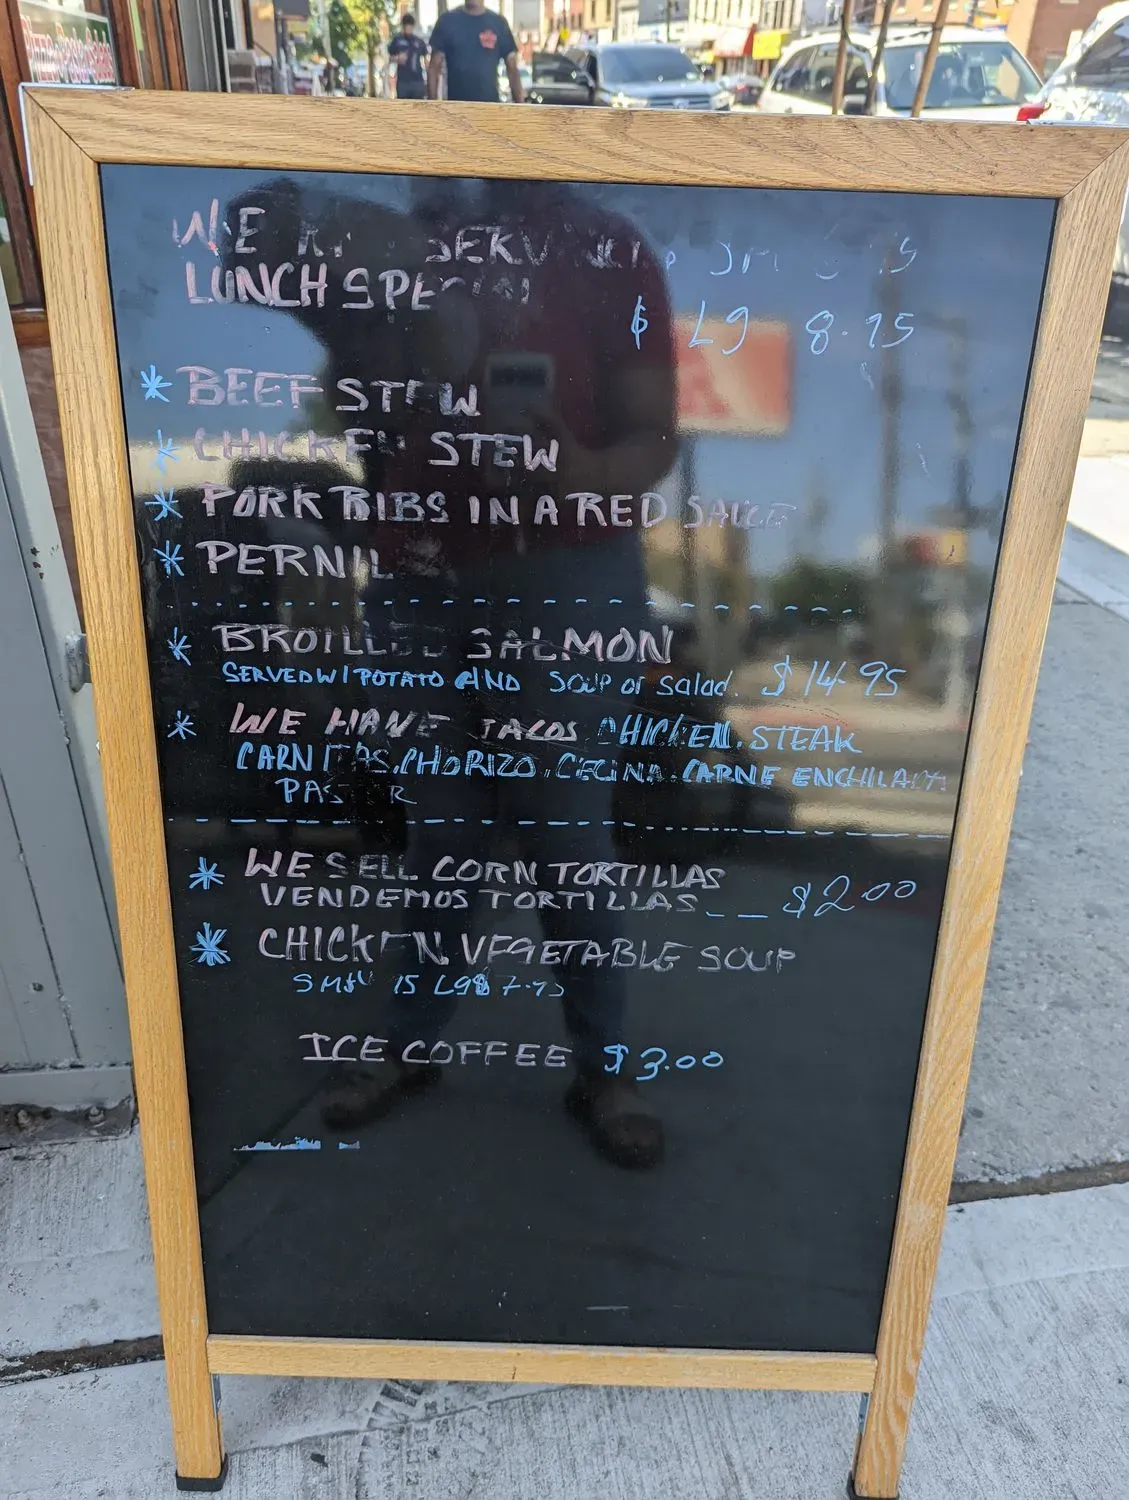 WE SERV
LUNCH SPECIAL
$ LG 8.75
* BEEF STEW
* CHICKEN STEW
* PORK RIBS IN A RED SAUCE
* PERNIL
* BROILLED SALMON
SERVED W/ POTATO AND SOUP or Salad. $14.95
* WE HAVE TACOS CHICKEN. STEAK
CARNITAS, CHORIZO, CECINA. CARNE ENCHILADA
PASTOR
* WE SELL CORN TORTILLAS
VENDEMOS TORTILLAS_ _ $2.00
* CHICKEN. VEGETABLE SOUP
LG$ 7.
ICE COFFEE $3.00